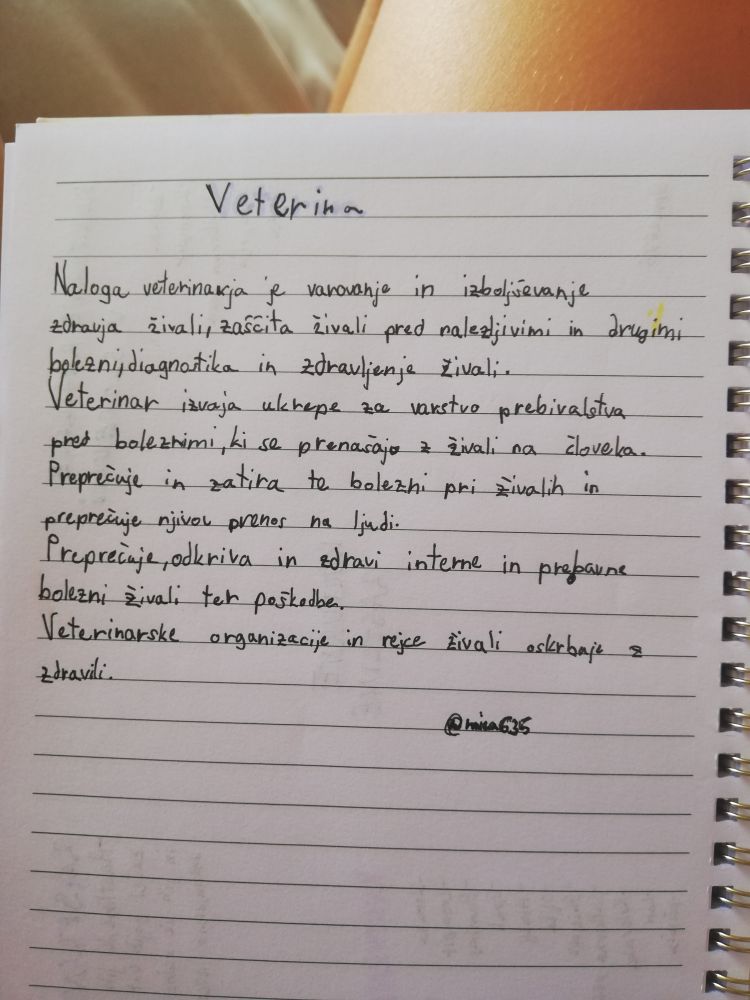 Veterina
Naloga veterinarja je varovanje in izboljševanje
zdravja živali, zaščita živali pred nalezljivimi in drugimi
bolezni, diagnostika in zdravljenje živali.
Veterinar izvaja ukrepe za varstvo prebivalstva
pred boleznimi, ki se prenašajo z živali na človeka.
Preprečuje in zatira te bolezni pri živalih in
preprečuje njivov prenos na ljudi.
Preprečuje, odkriva in zdravi interne in prebavne
bolezni živali ter poškodbe.
Veterinarske organizacije in rejce živali oskrbuje z
zdravili.